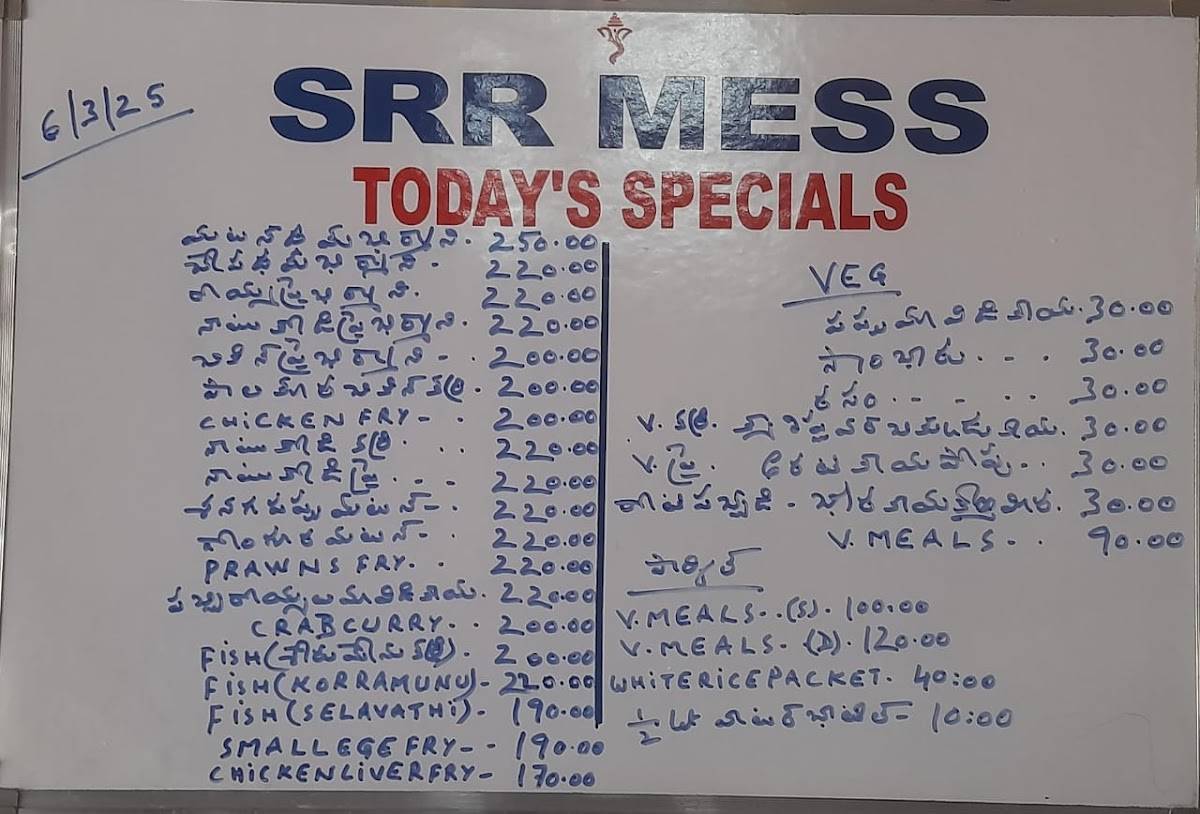 6/3/25
SRR MESS
TODAY'S SPECIALS
మటన్ దమ్ బిర్యాని. 250.00
220.00
రొయ్య ఫ్రై బిర్యాని. 220.00
నాటుకోడి ఫ్రై బిర్యాని. 220.00
చికెన్ ఫ్రై బిర్యాని - . 200.00
పాలకూర చికెన్ కర్రీ. 200.00
CHICKEN FRY - . 200.00
నాటుకోడి కర్రీ. . . 220.00
నాటుకోడి ఫ్రై. . . . 220.00
శనగపప్పు మటన్ - . 220.00
గోంగూర మటన్ - . 220.00
PRAWNS FRY. . 220.00
పచ్చిరొయ్యలు మామిడికాయ. 220.00
CRAB CURRY. . 200.00
FISH ( కర్రీ). 200.00
FISH (KORRAMUNU) - 220.00
FISH (SELAVATHI) - 190.00
SMALL EGE FRY - - 190.00
CHICKEN LIVER FRY - 170.00
VEG
పప్పు మామిడికాయ. 30.00
సాంబారు. . . . 30.00
రసం. . - - . . 30.00
V. కర్రీ. 30.00
V. ఫ్రై. 30.00
రోటి పచ్చడి - 30.00
V. MEALS . . 90.00
పార్శిల్
V. MEALS. . (S). 100.00
V. MEALS - (D). 120.00
WHITE RICE PACKET. 40:00
1/2 లీ వాటర్ బాటిల్ - 10:00